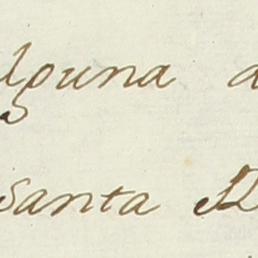 alguna
Santa